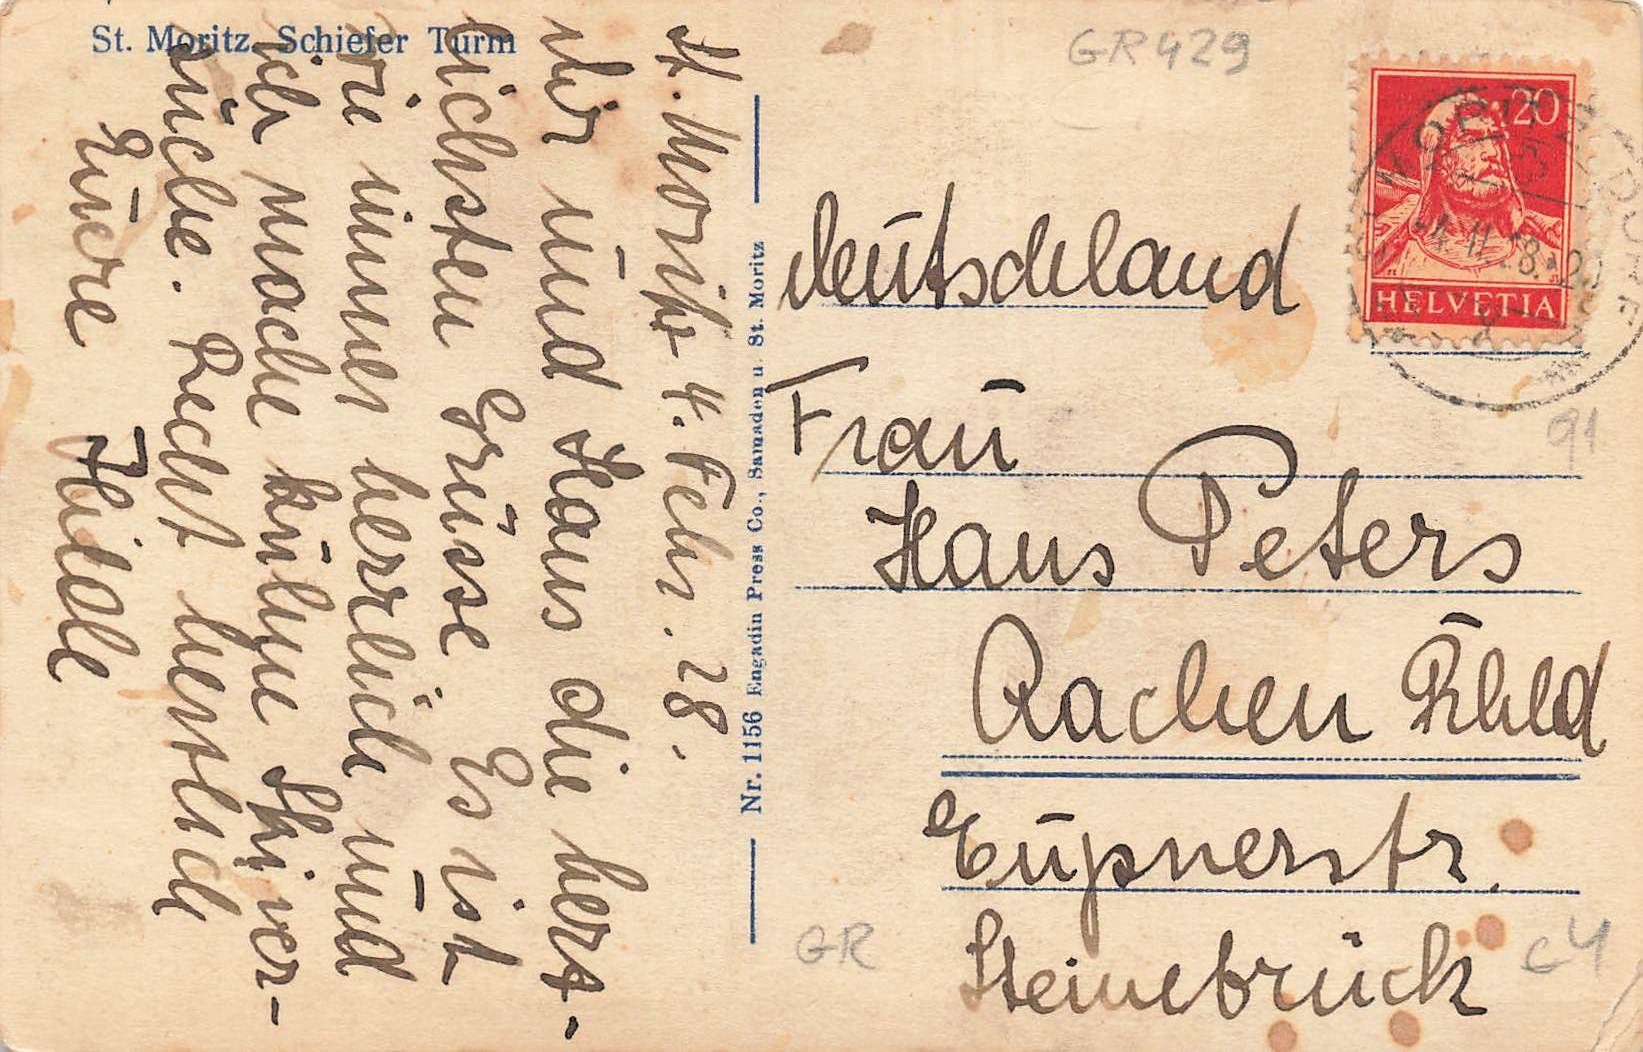 St. Moritz, Schiefer Turm
St. Moritz 4. Febr. 28.
Dir und Hans die herz-
lichsten Grüsse Es ist
wie immer herrlich und
ich mache kühne Skiver-
süche. Recht herzlich
Eüere Hilde
Nr. 1156 Engadin Press Co., Samaden u. St. Moritz
GR429
20
HELVETIA
91
Deutschland
Frau
Hans Peters
Aachen Rhld
Eüpnerstr.
Steinebrück
GR
C4